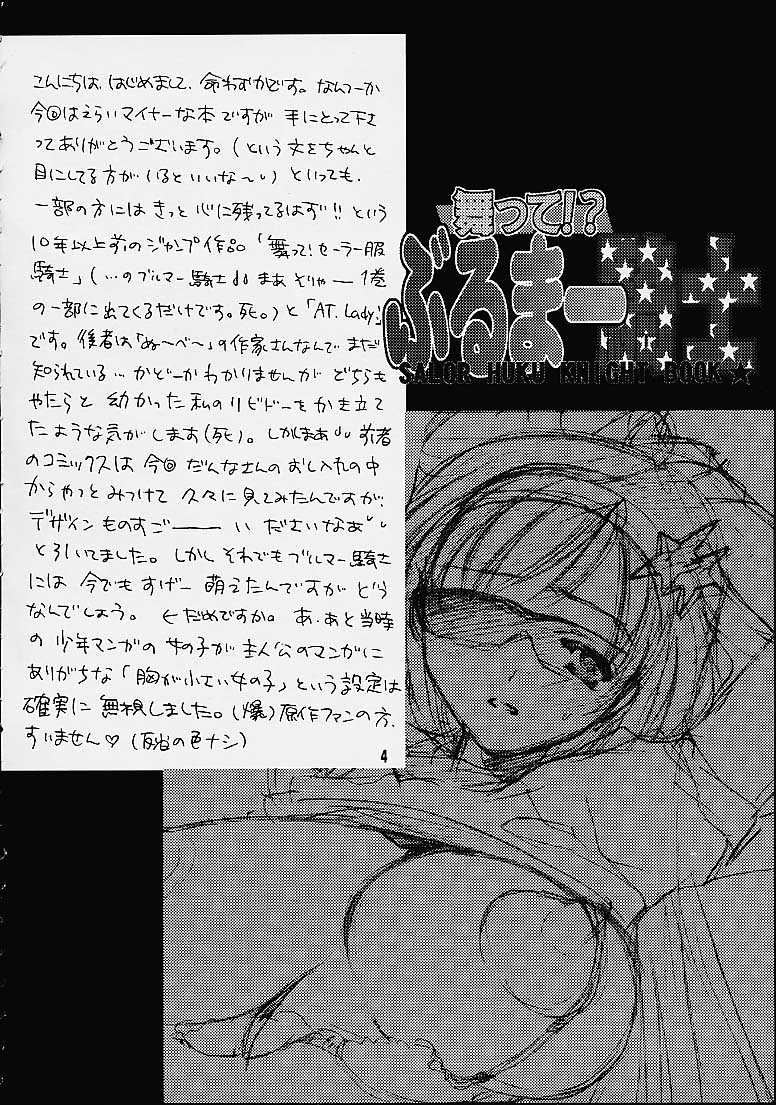 こんにちは、はじめまして、命わずかです。なんつーか
今回はえらいマイナーな本ですが 手にとって下さ
ってありがとうございます。(という文をちゃんと
目にしてる方がいるといいな〜。) といっても、
一部の方には きっと 心に残ってるはず!! という
10年以上前のジャンプ作品「舞って!セーラー服
騎士」(…のブルマー騎士 まあ そりゃー 1巻
の一部に出てくるだけです。死。)と「AT. Lady」
です。後者は「ぬ〜べ〜」の作家さんなんで まだ
知られている…かどーか わかりませんが どちらも
やたらと 幼かった 私のリビドーを かき立て
たような気がします(死)。しかしまあ 前者
のコミックスは 今回 だんなさんの おし入れの中
からやっとみつけて 久々に見てみたんですが、
デザイン ものすごーーい ださいなあ
とろいてました。しかし それでも ブルマー騎士
には 今でも すげー 萌えたんですが どう
なんでしょう。 ←だめですか。 あ、あと当時
の 少年マンガの 女の子が 主人公のマンガに
ありがちな「胸が小さい女の子」という設定は
確実に 無視しました。(爆) 原作ファンの方、
すいません♡ (反省の色ナシ)
4
舞って!?
ぶるまー騎士
SALOR HUKU KNIGHT BOOK★